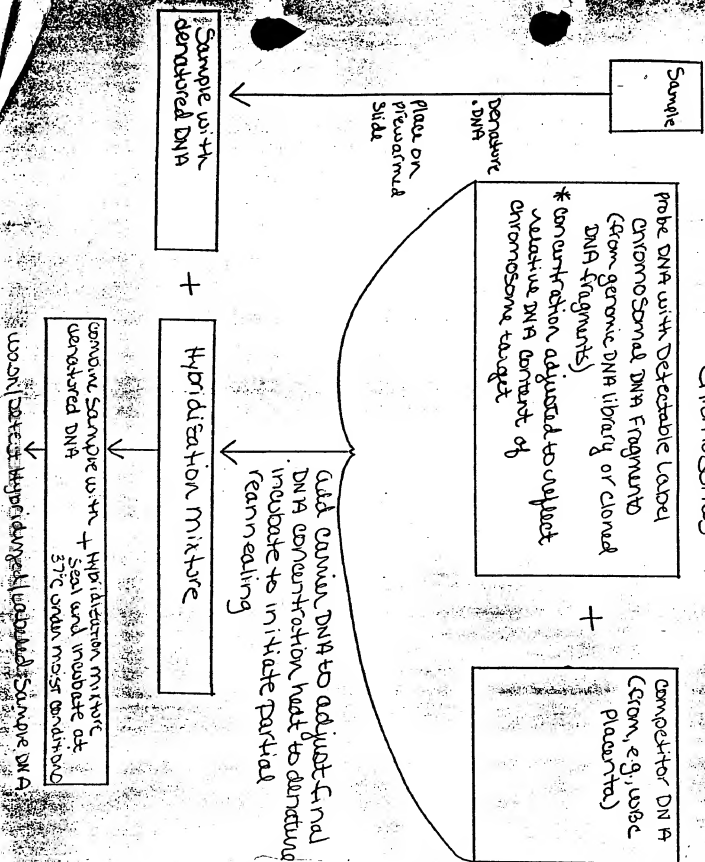 Sample
Denature
DNA
Place on
prewarmed
slide
Sample with
denatured DNA
+
probe DNA with Detectable Label
chromosomal DNA Fragments
(from genomic DNA library or cloned
DNA fragments)
* concentration adjusted to reflect
relative DNA content of
chromosome target
+
competitor DNA
(from, e.g., WBC
Placenta)
add carrier DNA to adjust final
DNA concentration heat to denature
incubate to initiate partial
reannealing
Hybridization mixture
combine sample with + Hybridization mixture
denatured DNA
seal and incubate at
37°C under moist conditions
wash/Detect Hybridized/Labeled Sample DNA